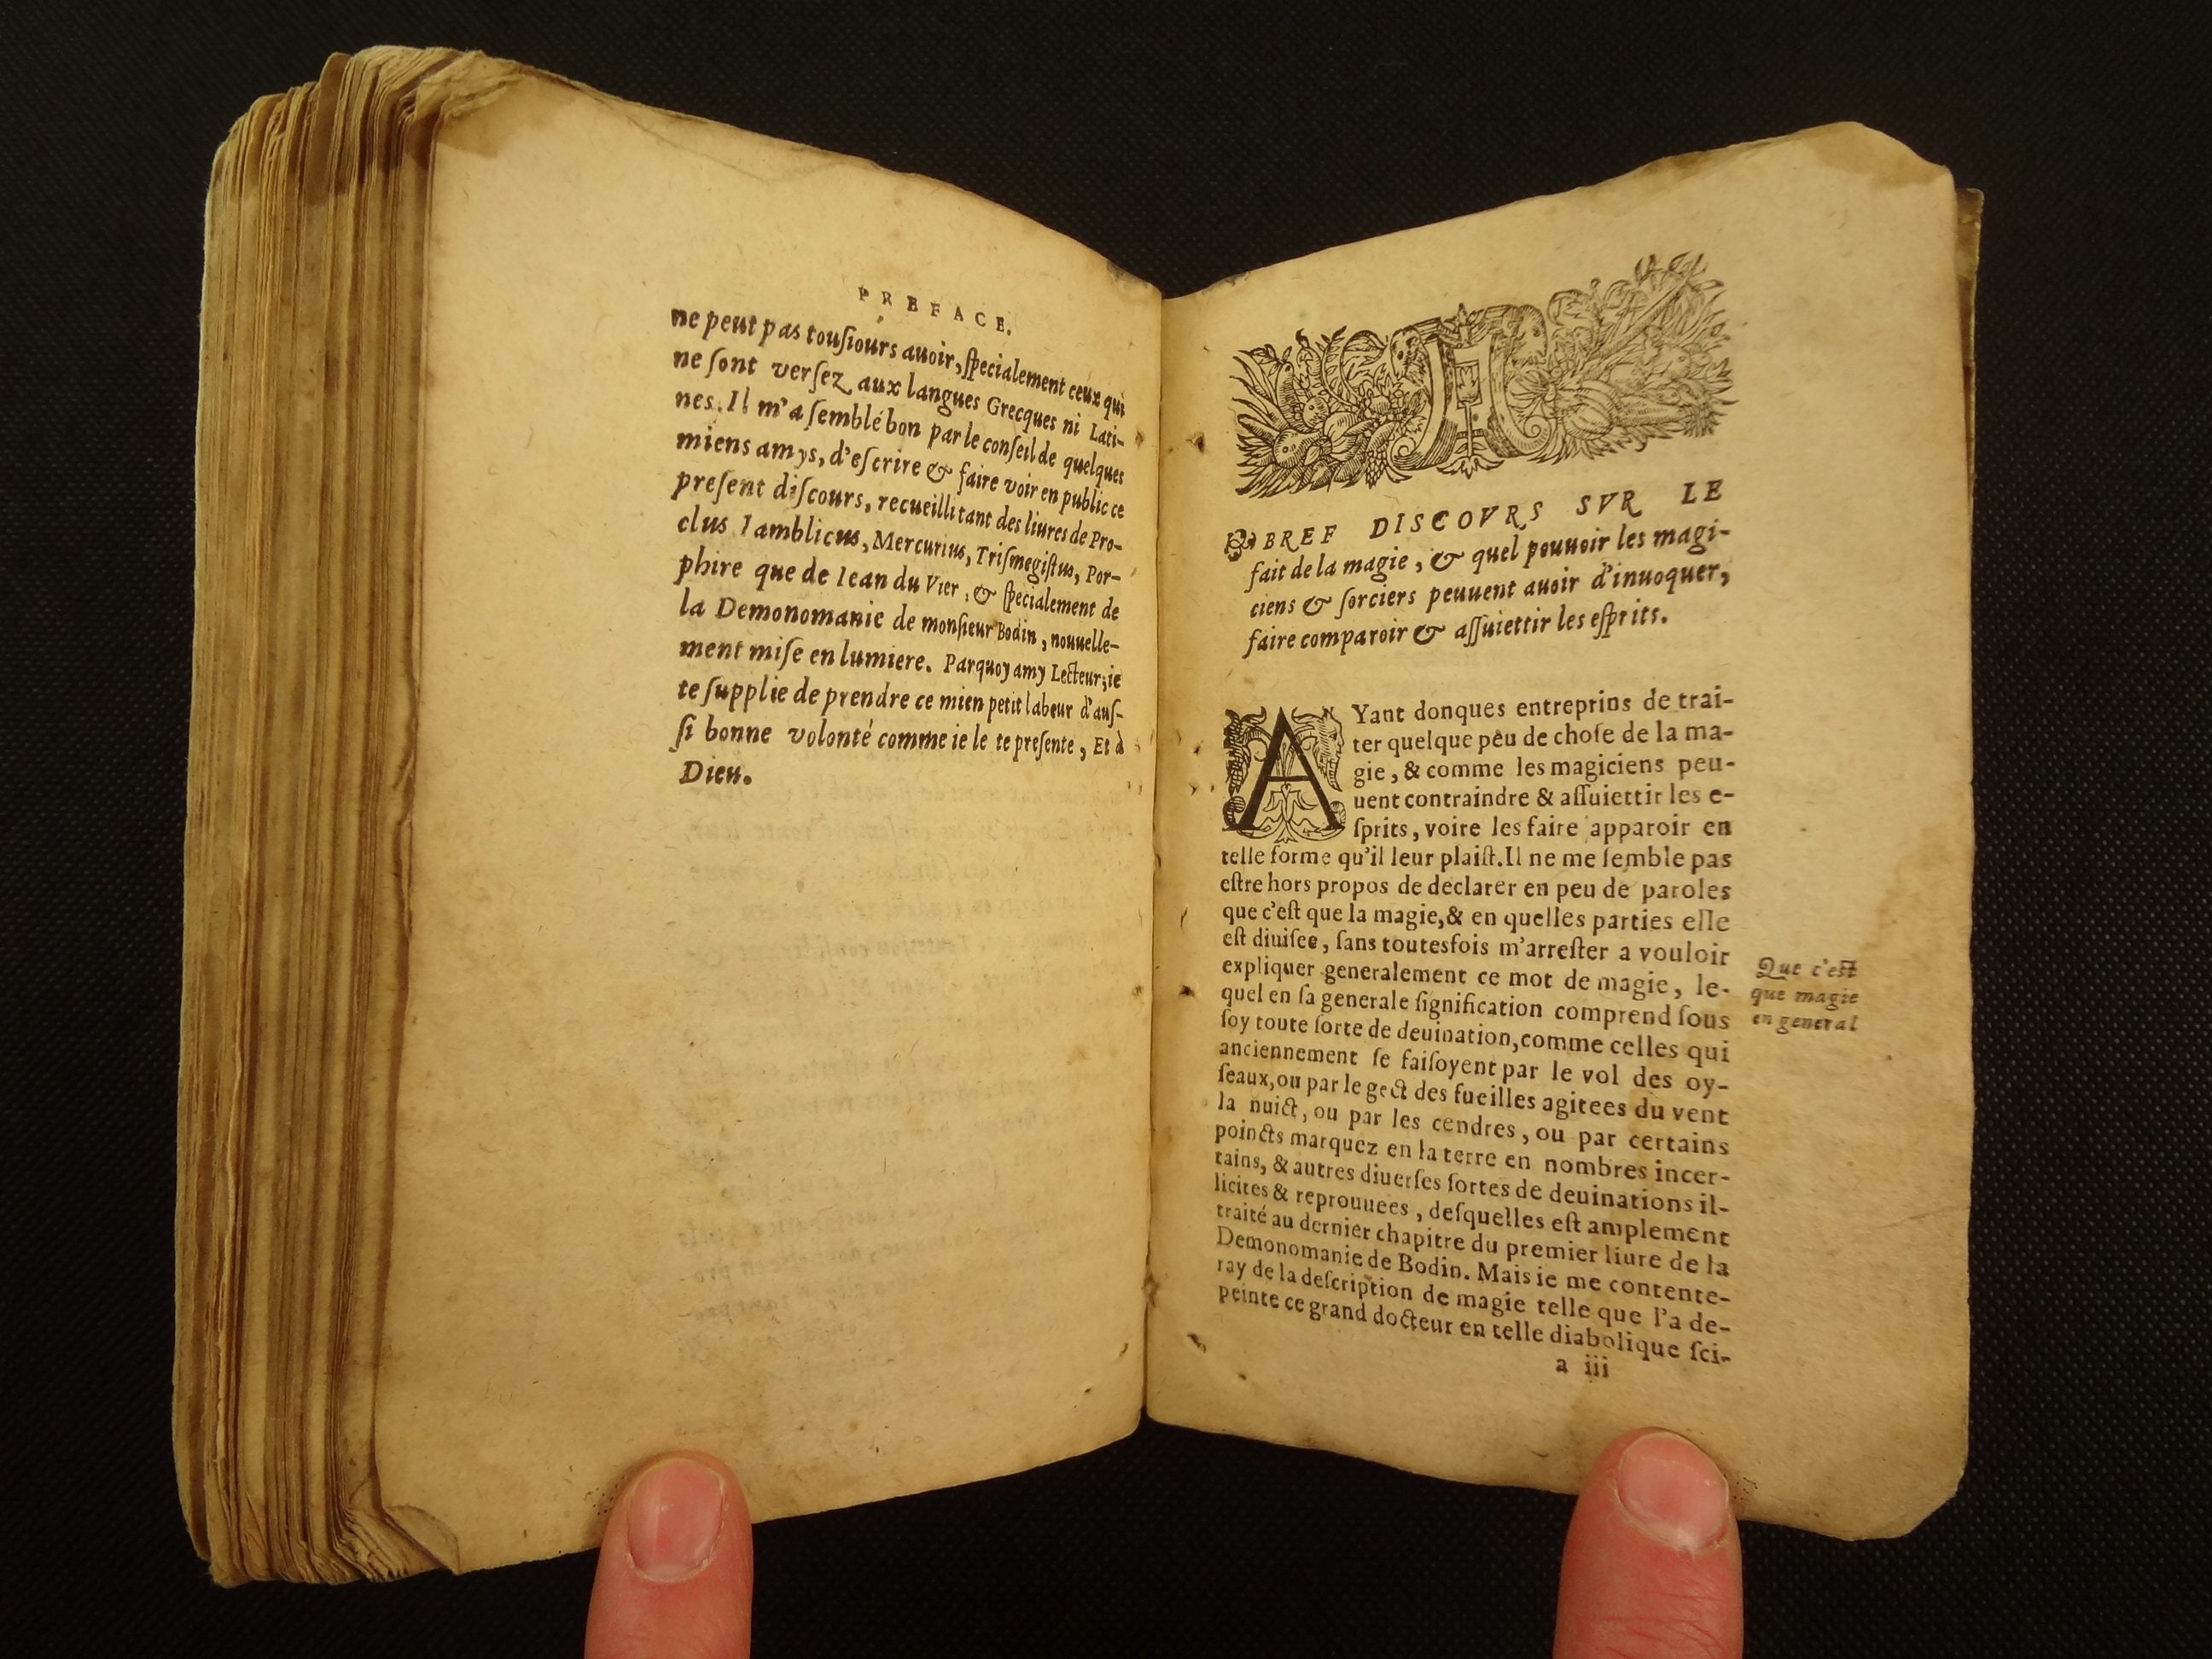 PREFACE.
ne peut pas touſiours auoir, ſpecialement ceux qui
ne ſont verſez aux langues Grecques ni Lati-
nes. Il m'a ſemblé bon par le conſeil de quelques
miens amys, d'eſcrire & faire voir en public ce
preſent diſcours, recueilli tant des liures de Pro-
clus Iamblicus, Mercurius, Triſmegiſtus, Por-
phire que de Iean du Vier, & ſpecialement de
la Demonomanie de monſieur Bodin, nouuelle-
ment miſe en lumiere. Parquoy amy Lecteur, ie
te ſupplie de prendre ce mien petit labeur d'auſ-
ſi bonne volonté comme ie le te preſente, Et à
Dieu.
BREF DISCOVRS SVR LE
fait de la magie, & quel pouuoir les magi-
ciens & ſorciers peuuent auoir d'inuoquer,
faire comparoir & aſſuiettir les eſprits.
AYant donques entreprins de trai-
ter quelque peu de choſe de la ma-
gie, & comme les magiciens peu-
uent contraindre & aſſuiettir les e-
ſprits, voire les faire apparoir en
telle forme qu'il leur plaiſt. Il ne me ſemble pas
eſtre hors propos de declarer en peu de paroles
que c'eſt que la magie, & en quelles parties elle
eſt diuiſee, ſans toutesfois m'arreſter a vouloir
expliquer generalement ce mot de magie, le-
quel en ſa generale ſignification comprend ſous
ſoy toute ſorte de deuination, comme celles qui
anciennement ſe faiſoyent par le vol des oy-
ſeaux, ou par le gect des fueilles agitees du vent
la nuict, ou par les cendres, ou par certains
poincts marquez en la terre en nombres incer-
tains, & autres diuerſes ſortes de deuinations il-
licites & reprouuees, deſquelles eſt amplement
traité au dernier chapitre du premier liure de la
Demonomanie de Bodin. Mais ie me contente-
ray de la deſcription de magie telle que l'a de-
peinte ce grand docteur en telle diabolique ſci-
a iii
Que c'eſt
que magie
en general